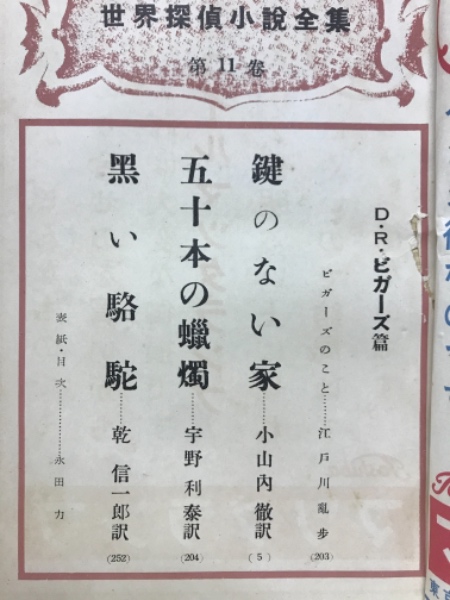 世界探偵小説全集
第11巻
D・R・ビガーズ篇
ビガーズのこと………江戸川亂歩(203)
鍵のない家……小山内徹訳(5)
五十本の蠟燭……宇野利泰訳(204)
黒い駱駝……乾信一郎訳(252)
表紙・目次………………永田力